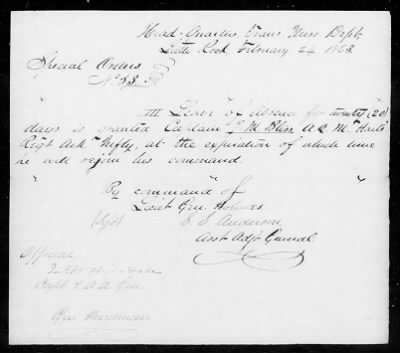 Head Quarters Trans Miss Dept
Little Rock February 24 1863
Special Orders
No 53
III Leave of Absence for twenty (20)
days is granted Captain J M Bliss A.Q.M. Hart's
Regt Ark Infty, at the expiration of which time
he will rejoin his command.
" " "
By command of
Lieut Gen. Holmes
(Sgd) S. S. Anderson
Asst Adjt General
Official
Capt & A A Gen
Gen Hindman